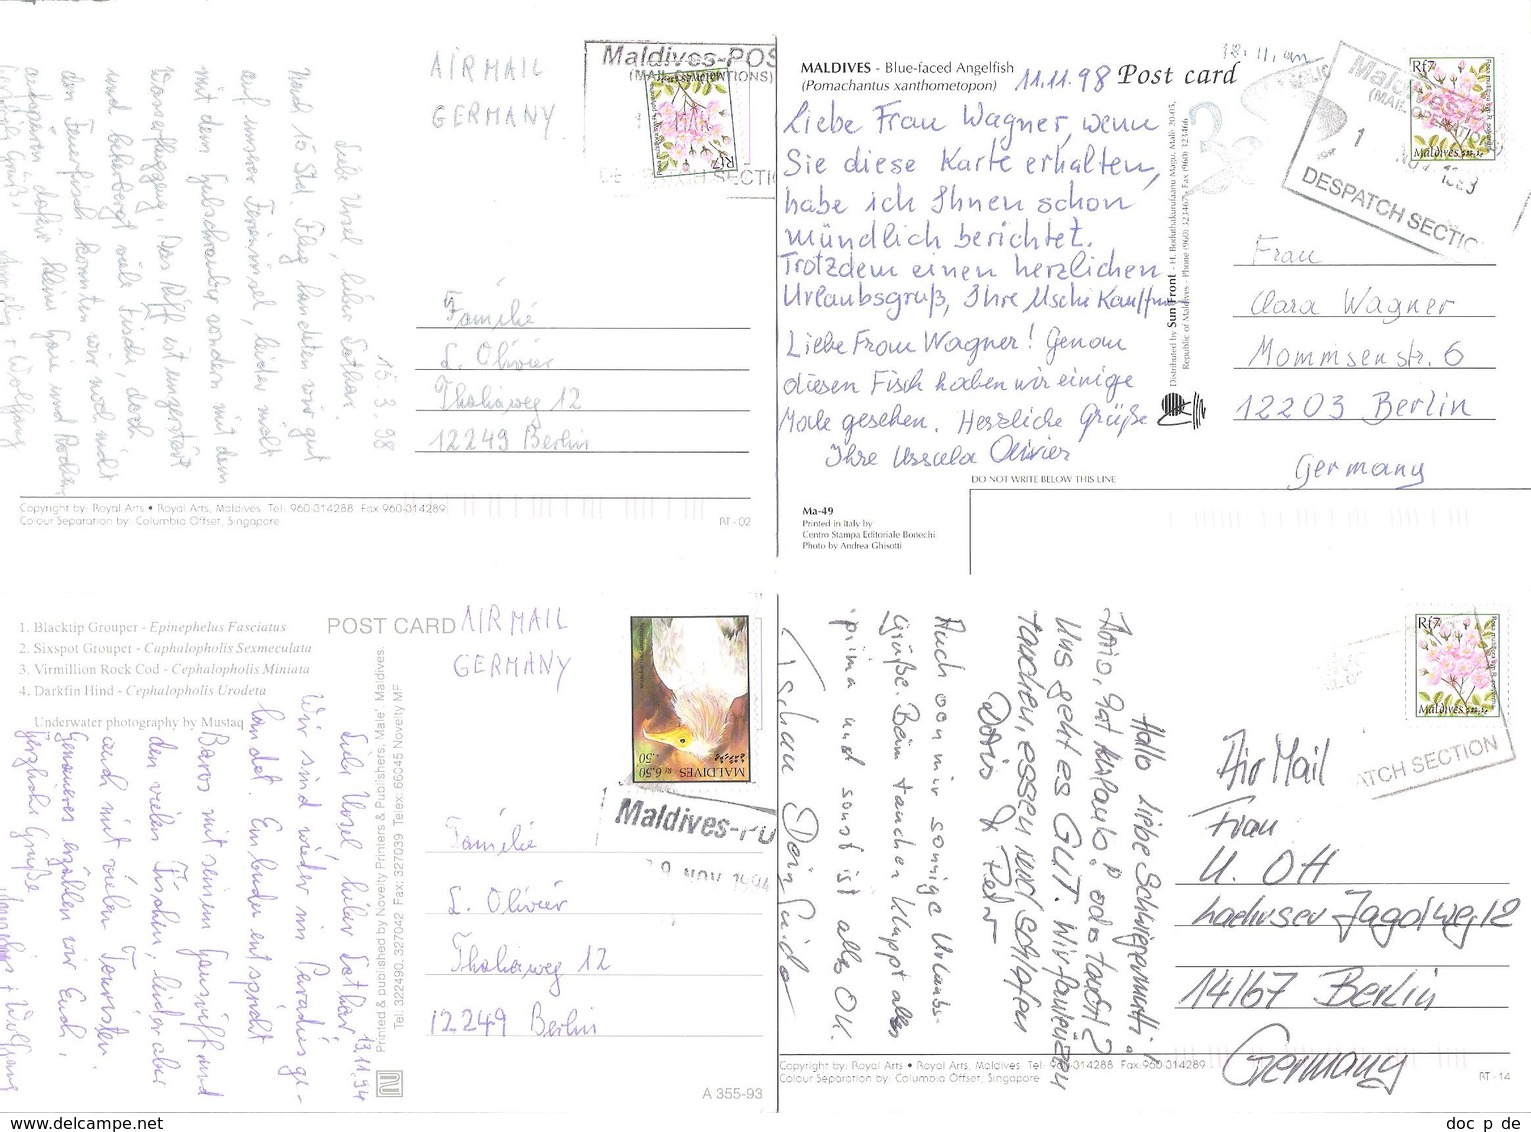 AIRMAIL
GERMANY
Maldives-POS
DESPATCH SECTI
Rf7
15.3.98
Liebe Ursel, lieber Lothar,
Nach 10 Std. Flug landeten wir gut
auf unserer Ferieninsel, leider nicht
mit dem Hubschrauber sondern mit dem
Wasserflugzeug. Das Riff ist ungestört
und beherbergt viele Fische, doch
den Feuerfisch konnten wir noch nicht
aufspüren dafür kleine Haie und Rochen.
Wolfgang
Familie
L. Olivier
Thaliaweg 12
12249 Berlin
Copyright by: Royal Arts • Royal Arts, Maldives Tel: 960-314288 Fax: 960-314289
Colour Separation by: Columbia Offset, Singapore
RT - 02
MALDIVES - Blue-faced Angelfish
(Pomachantus xanthometopon)
11.11.98
Post card
18.11. an
Liebe Frau Wagner, wenn
Sie diese Karte erhalten,
habe ich Ihnen schon
mündlich berichtet.
Trotzdem einen herzlichen
Urlaubsgruß, Ihre Uschi Kauffmann
Liebe Frau Wagner! Genau
diesen Fisch haben wir einige
Male gesehen. Herzliche Grüße
Ihre Ursula Olivier
Distributed by Sun Front - H. Boduthakurufaanu Magu, Malé 20-05,
Republic of Maldives - Phone (960) 323467 - Fax (960) 323466
Rf7
Maldives
DESPATCH SECTIO
Frau
Clara Wagner
Mommsenstr. 6
12203 Berlin
Germany
DO NOT WRITE BELOW THIS LINE
Ma-49
Printed in Italy by
Centro Stampa Editoriale Bonechi
Photo by Andrea Ghisotti
1. Blacktip Grouper - Epinephelus Fasciatus
2. Sixspot Grouper - Caphalopholis Sexmeculata
3. Virmillion Rock Cod - Cephalopholis Miniata
4. Darkfin Hind - Cephalopholis Urodeta
Underwater photography by Mustaq
POST CARD
AIRMAIL
GERMANY
13.11.94
Liebe Ursel, lieber Lothar,
wir sind wieder im Paradies ge-
landet. Embudu entspricht
Baros mit seinem Hausriff und
den vielen Fischen, leider aber
auch mit vielen Touristen.
Genaueres erzählen wir Euch.
Herzliche Grüße
+ Wolfgang
Printed & published by Novelty Printers & Publishers, Male', Maldives.
Tel: 322490, 327042 Fax: 327039 Telex: 66045 Novelty MF
MALDIVES Rf 6.50
Maldives-PO
9 NOV 1994
Familie
L. Olivier
Thaliaweg 12
12249 Berlin
A 355-93
Hallo liebe Schwiegermutti!
Uns geht es GUT. Wir faulenzen
tauchen, essen und schlafen
Doris & Peter
Auch von mir sonnige Urlaubs-
grüße. Beim tauchen klappt alles
prima und sonst ist alles OK.
Tschau Dein Guido
Rf7
Maldives
ATCH SECTION
Air Mail
Frau
U. Ott
12
14167 Berlin
Germany
Copyright by: Royal Arts • Royal Arts, Maldives Tel: 960-314288 Fax: 960-314289
Colour Separation by: Columbia Offset, Singapore
RT - 14
doc p de